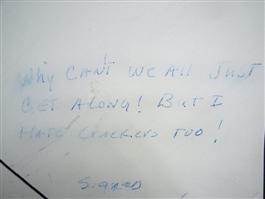 Why CAN'T WE All JUST
GET AlONG! BUT I
HATE CRACKERS TOO!
SIGNED